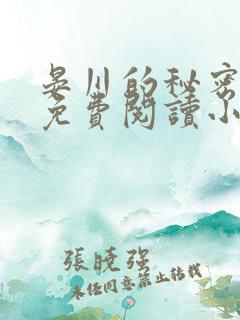 晏川的秘密
免費閱讀小
張曉強
未经同意禁止转载